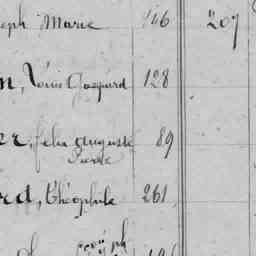 eph Marie 146 207
n, Louis Gaspard 128
er, Felix Auguste 89
Pierre
rd, Théophile 261
Joseph